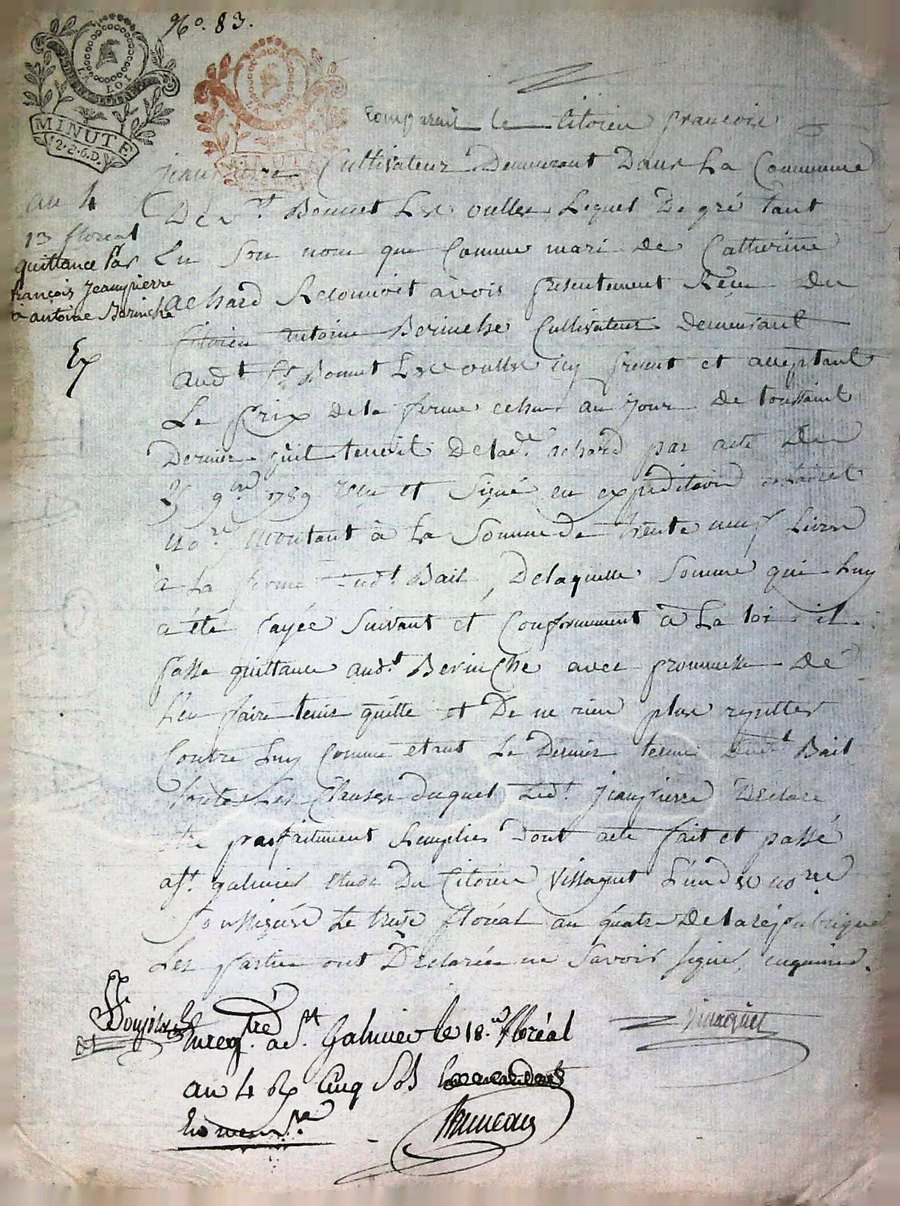 No. 83.
LOI
MINUTE
12.2.6.D.
MINUTE
Comparait le Citoien françois
jeanpierre Cultivateur Demeurant Dans La Commune
De St. Bonnet Les oulles Lequel De gré tant
En Son nom que Comme mari de Catherine
achard Reconnoit avoir presentement Reçu du
Citoien antoine Berinche Cultivateur demeurant
audt. St. Bonnet Les oulles icy present et acceptant
Le prix de la ferme echue au jour de toussaint
Dernier qu'il tenoit De lade. achard par acte du
9bre 1789 reçu et Signé en expedition
nore. montant à La Somme de trente neuf Livres
à La forme dudt. Bail, De laquelle Somme qui Luy
a été payée Suivant et Conformement à La loi il
passe quittance audt. Berinche avec promesse De
L'en faire tenir quitte et De ne rien plus repetter
Contre Luy Comme etant Le Dernier terme dudt. Bail
toutes Les Clauses duquel Ledt. jeanpierre Declare
etre parfaitement Remplies Dont acte fait et passé
à St. galmier etude Du Citoien Villaquet L'un des nores
Soussignés Le treize floréal an quatre De La republique
Les parties ont Declarées ne Savoir Signer, enquises.
an 4
13 floréal
quittance par
françois Jeanpierre
à antoine Berinche
Ex
Enregtré. à St. Galmier le 18. floréal
an 4 Rx Cinq Sols